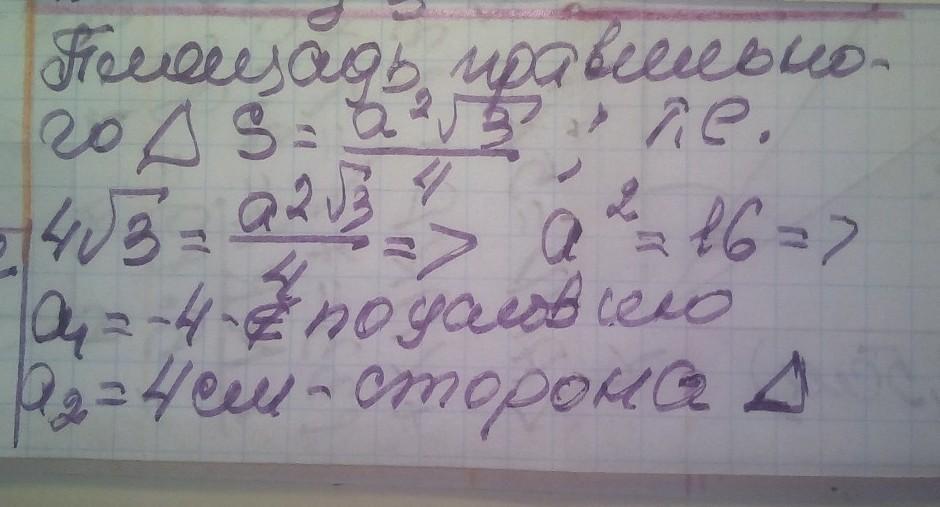 Площадь правильно-
го Δ S = a²√3/4 ; т.е.
4√3 = a²√3/4 => a² = 16 =>
a₁ = -4 - ∉ по условию
a₂ = 4 см - сторона Δ